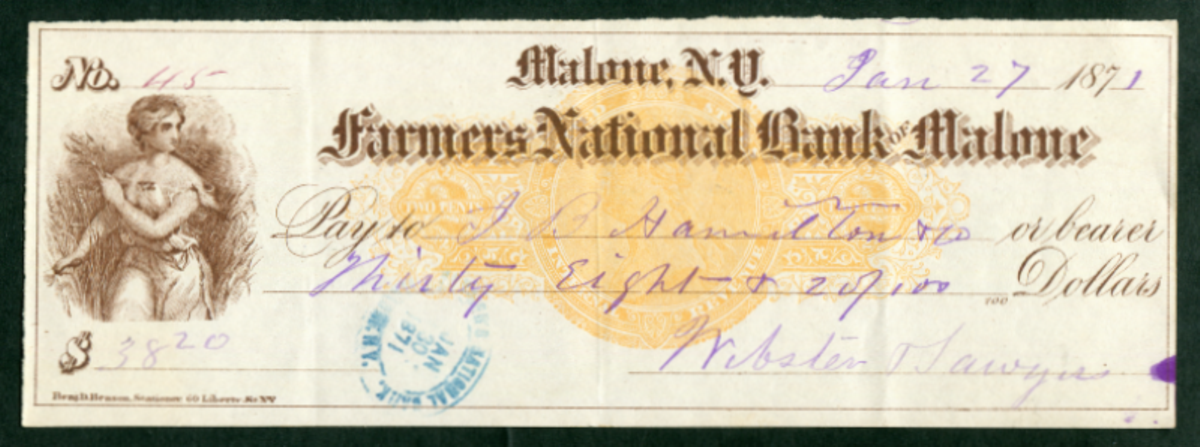 No. 45
Malone, N.Y. Jan 27 1871
Farmers National Bank of Malone
TWO CENTS
Pay to J B Hamilton & Co or bearer
Thirty Eight & 20/100 Dollars
100
$ 38 20
JAN
1871
NATIONAL BANK
N.Y.
Webster & Sawyer
Benj. D. Benson, Stationer 60 Liberty St. N.Y.